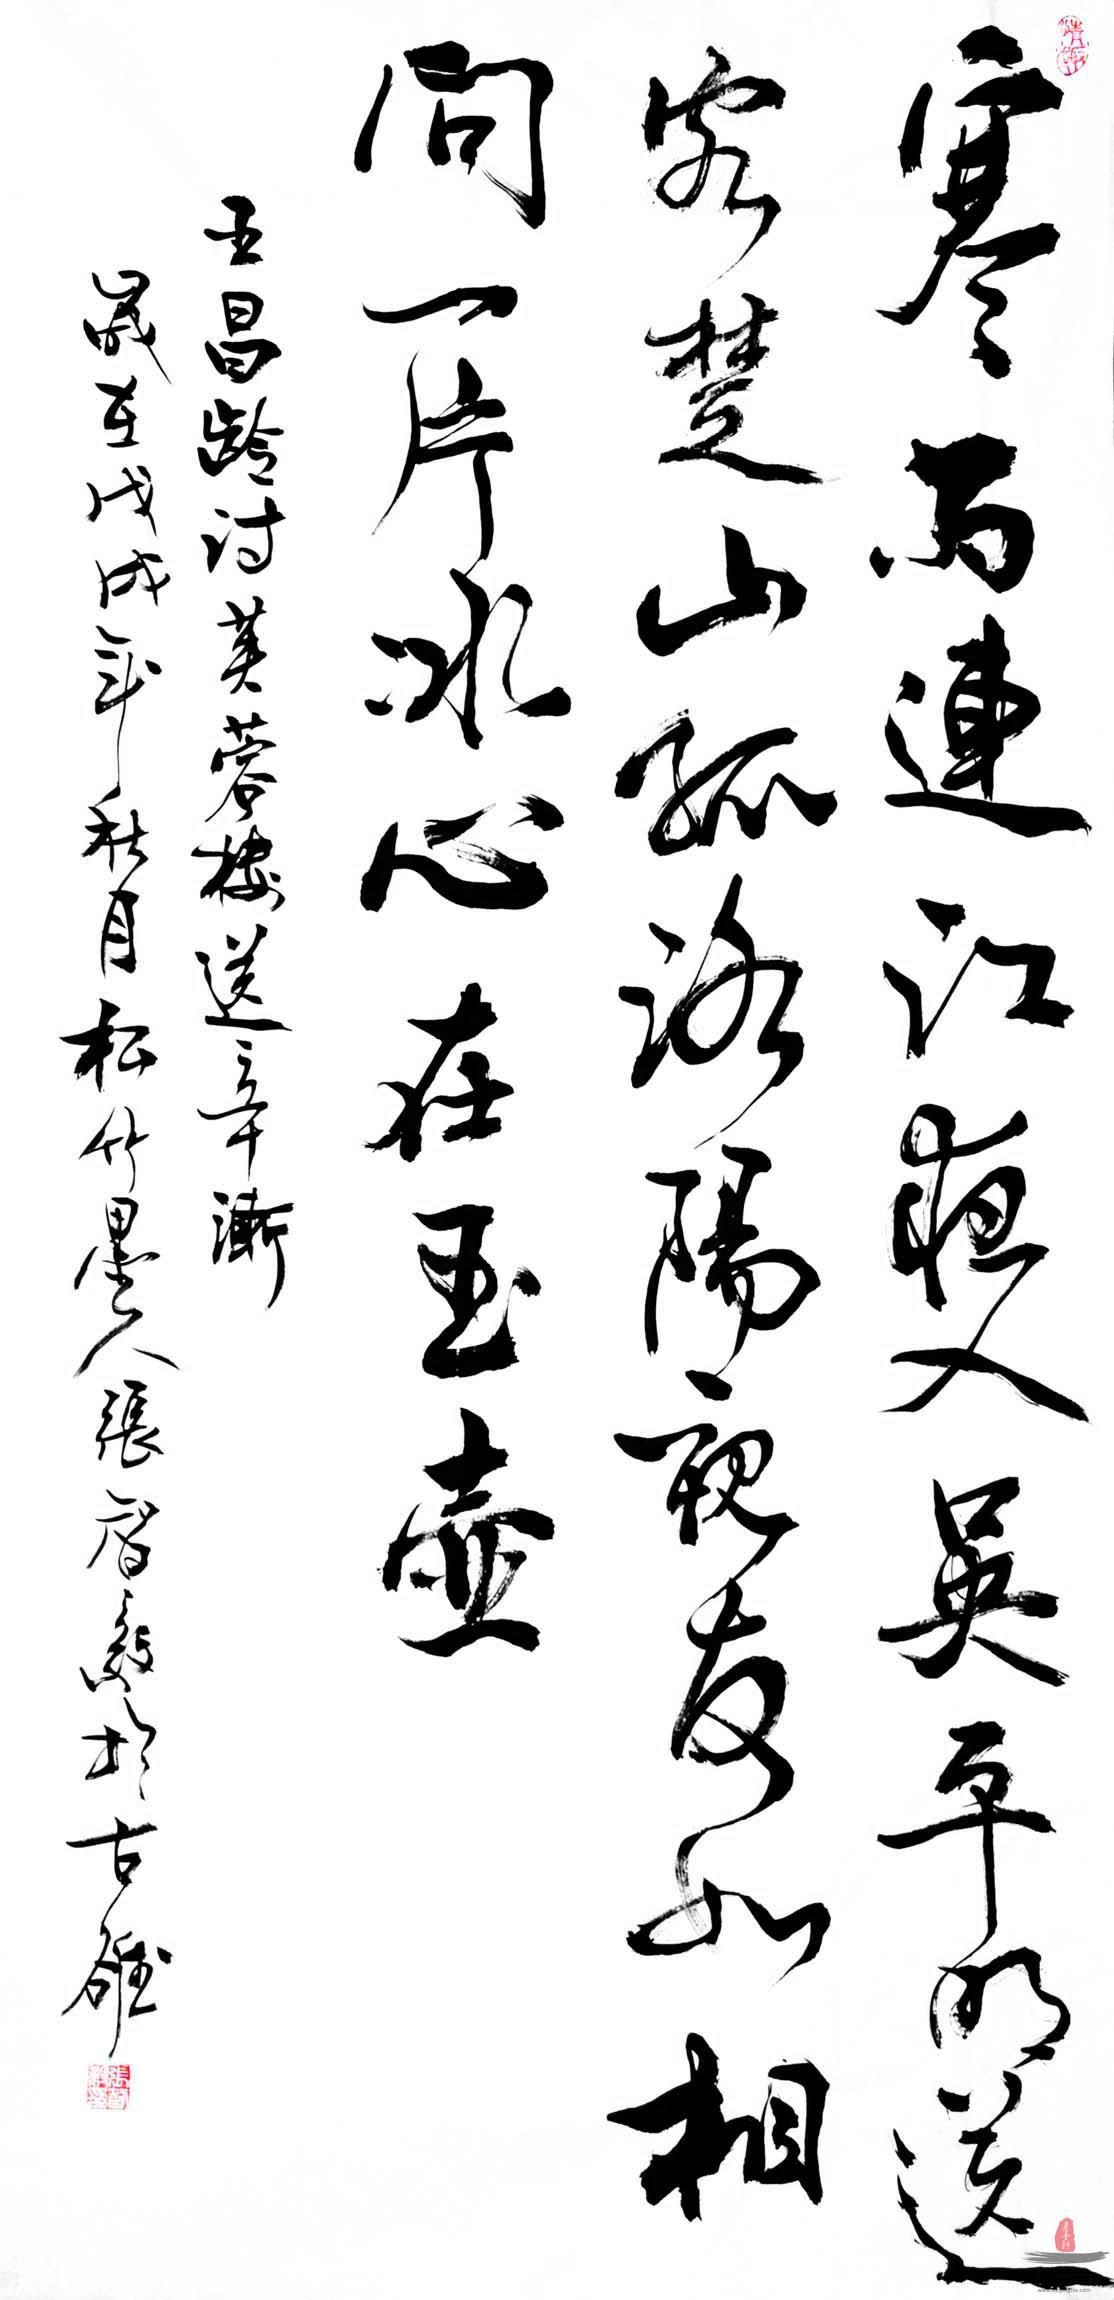 寒雨連江夜入吳平明送
客楚山孤洛陽親友如相
問一片冰心在玉壺
王昌齡詩芙蓉樓送辛漸
歲在戊戌年秋月松竹墨人張智毅於古雒